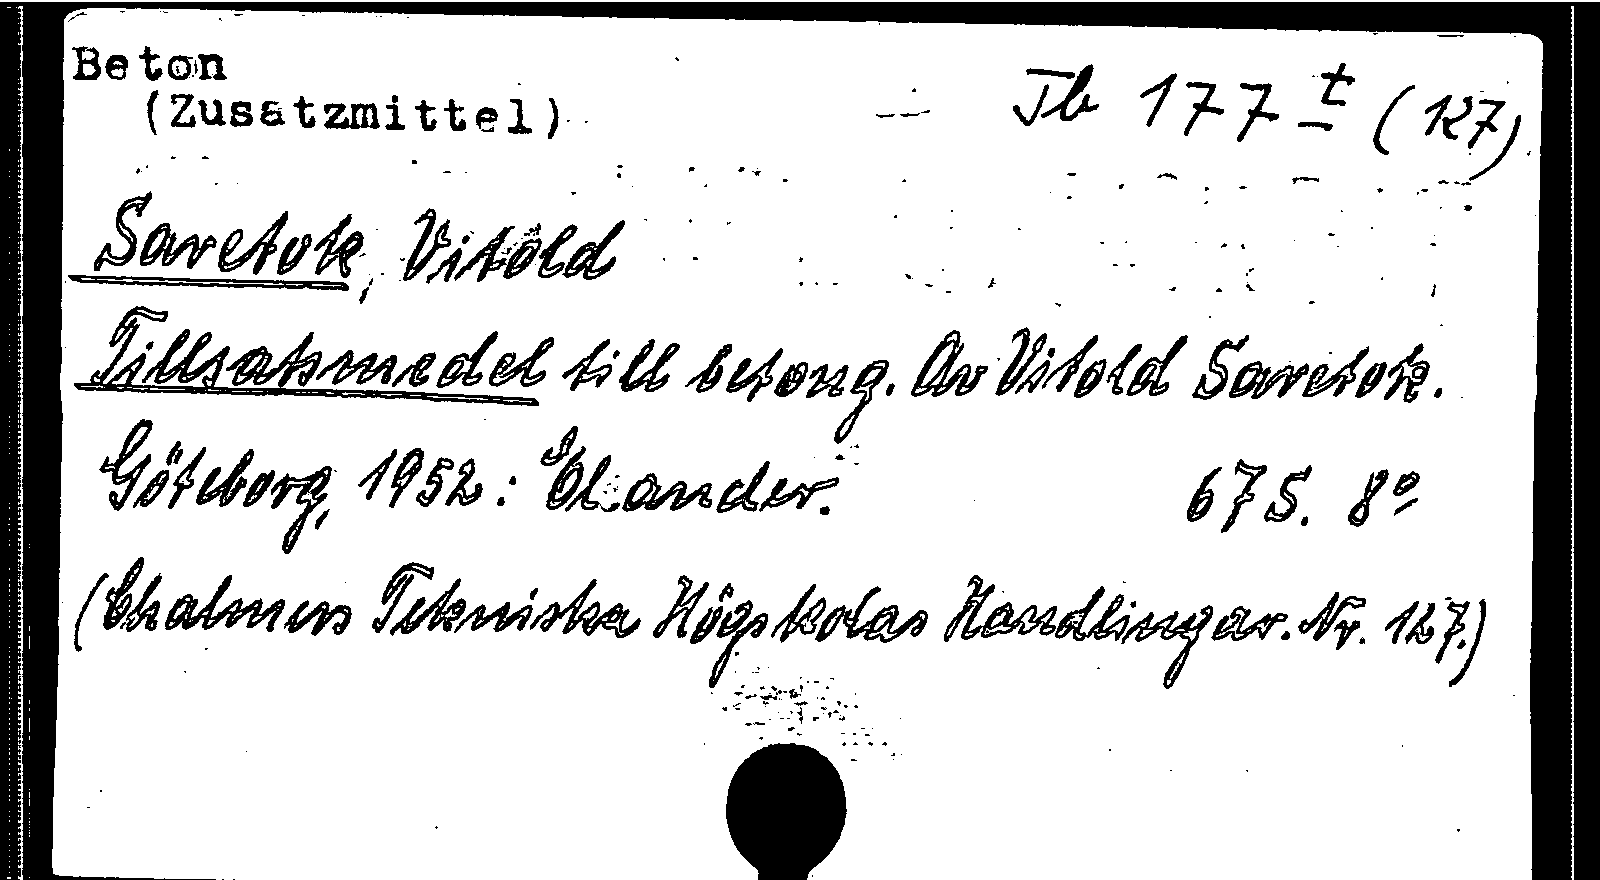 Beton
(Zusatzmittel)
Tb 177 t (127)
Saretok, Vitold
Tillsatsmedel till betong. Av Vitold Saretok.
Göteborg, 1952: Elander. 67 S. 8°
(Chalmers Tekniska Högskolas Handlingar. Nr. 127.)